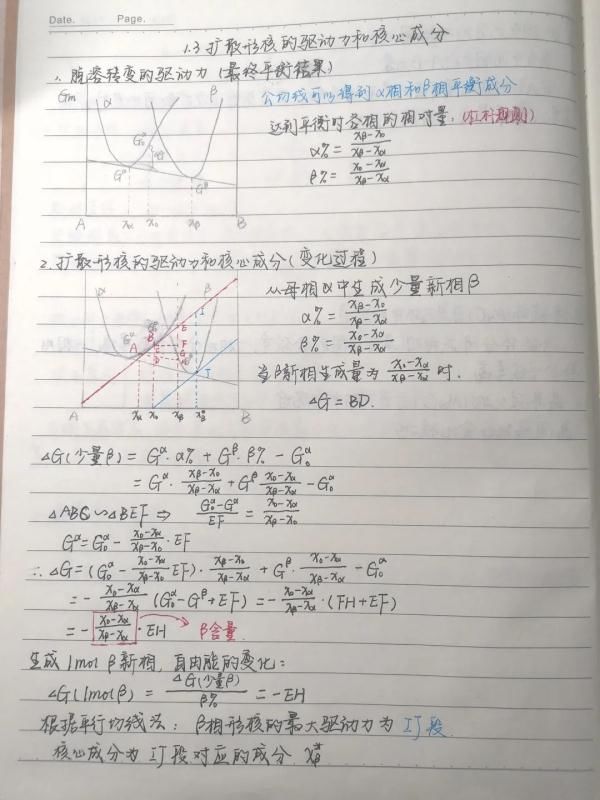 Date. Page.
1.3 扩散形核的驱动力和核心成分
1. 脱溶转变的驱动力(最终平衡结果)
Gm α β
公切线可以得到α相和β相平衡成分
达到平衡时各相的相对量:(杠杆规则)
α% = (xβ-x0)/(xβ-xα)
β% = (x0-xα)/(xβ-xα)
G0^α ΔG
G^α G^β
A xα x0 xβ B
2. 扩散形核的驱动力和核心成分(变化过程)
从母相α中生成少量新相β
α% = (xβ-x0)/(xβ-xα)
β% = (x0-xα)/(xβ-xα)
当β新相生成量为 (x0-xα)/(xβ-xα) 时,
ΔG = BD.
α β
A B E F I J
A xα x0 xβ B
ΔG(少量β) = G^α·α% + G^β·β% - G0^α
= G^α·(xβ-x0)/(xβ-xα) + G^β (x0-xα)/(xβ-xα) - G0^α
ΔABG ∽ ΔBEF ⇒ (G0^α-G^α)/EF = (x0-xα)/(xβ-x0)
G^α = G0^α - (x0-xα)/(xβ-x0)·EF
∴ ΔG = (G0^α - (x0-xα)/(xβ-x0) EF)·(xβ-x0)/(xβ-xα) + G^β·(x0-xα)/(xβ-xα) - G0^α
= - (x0-xα)/(xβ-xα) (G0^α - G^β + EF) = - (x0-xα)/(xβ-xα)·(FH+EF)
= - (x0-xα)/(xβ-xα)·EH → β含量
生成1mol β新相,自由能的变化:
ΔG(1molβ) = ΔG(少量β)/β% = -EH
根据平行切线法:β相形核的最大驱动力为 IJ段
核心成分为IJ段对应的成分